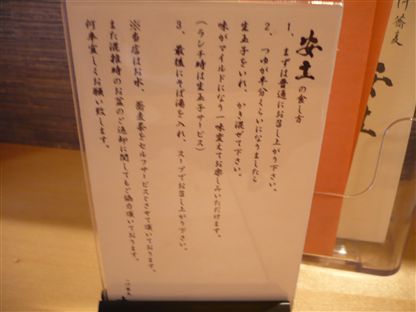 安土の食し方
1、まずは普通にお召し上がり下さい。
2、つゆが半分くらいになりましたら
生玉子をいれ、かき混ぜて下さい。
味がマイルドになり一味変えてお楽しみいただけます。
（ランチ時は生玉子サービス）
3、最後にそば湯を入れ、スープでお召し上がり下さい。
※当店はお水、蕎麦茶をセルフサービスとさせて頂いております。
また混雑時のお盆のご返却に関してもご協力頂いております。
何卒宜しくお願い致します。